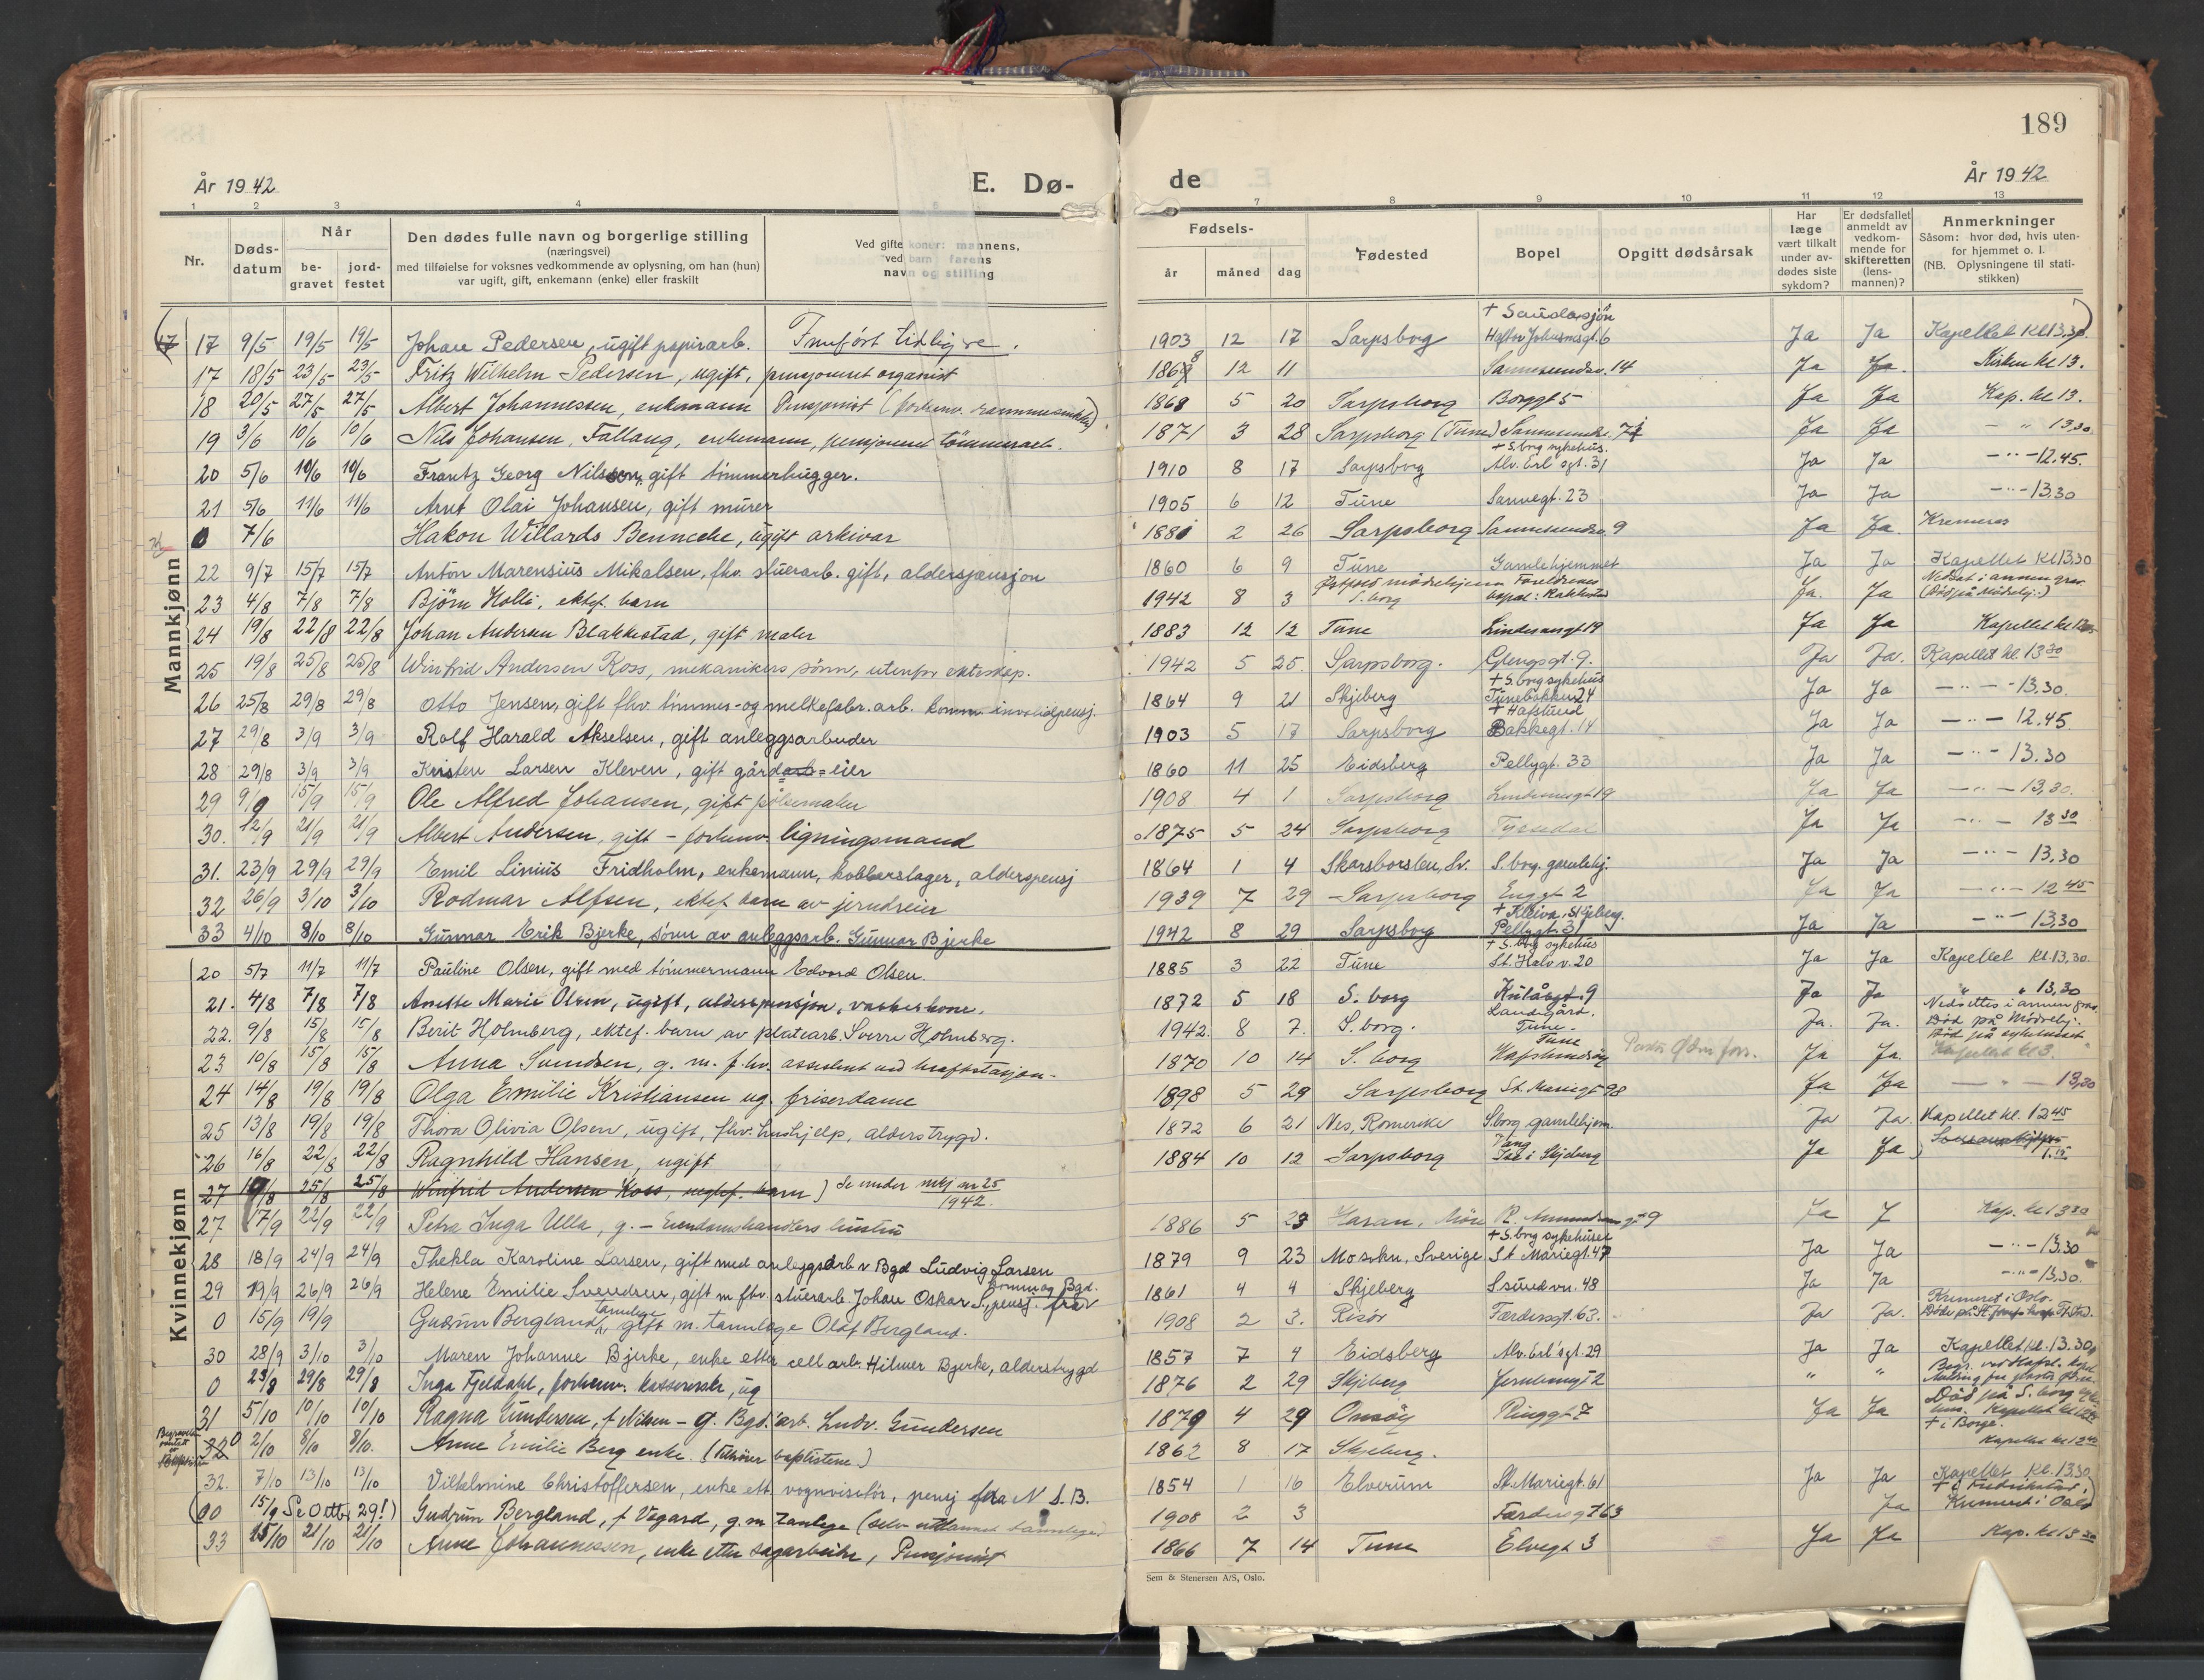 189
År 1942
E. Dø-
de
År 1942
1 2 3 4 7 8 9 10 11 12 13
Nr.
Døds-datum
Når
be-gravet
jord-festet
Den dødes fulle navn og borgerlige stilling
(næringsvei)
med tilføielse for voksnes vedkommende av oplysning, om han (hun)
var ugift, gift, enkemann (enke) eller fraskilt
Ved gifte koner: mannens,
ved barn: farens
navn og stilling
Fødsels-
år
måned
dag
Fødested
Bopel
Opgitt dødsårsak
Har læge vært tilkalt under av-dødes siste sykdom?
Er dødsfallet anmeldt av vedkom-mende for skifteretten (lens-mannen)?
Anmerkninger
Såsom: hvor død, hvis uten-
for hjemmet o. l.
(NB. Oplysningene til stati-
stikken)
Mannkjønn
17 9/5 19/5 19/5 Johan Pedersen, ugift papirarb. Innført tidligere. 1903 12 17 Sarpsborg 6 Ja Ja Kapellet Kl 13.30
17 18/5 23/5 23/5 Fritz Wilhelm Pedersen, ugift, pensjonert organist 1868 12 11 Sannesundsv. 14 Ja Ja. Kirken kl 13.
18 20/5 27/5 27/5 Albert Johannessen, enkemann Pensjonist 1868 5 20 Sarpsborg Borggt 5 Ja Ja Kap. kl 13.
19 3/6 10/6 10/6 Nils Johansen, Fallang, enkemann, pensjonert tømmerarb. 1871 3 28 Sarpsborg (Tune) Sannesundsv. Ja Ja – " 13,30
20 5/6 10/6 10/6 Frantz Georg Nilsson, gift tømmerhugger. 1910 8 17 Sarpsborg + S.borg sykehus. Alv. Erl sgt. 31 Ja Ja –"–12.45.
21 5/6 11/6 11/6 Arnt Olai Johansen, gift murer 1905 6 12 Tune Sannegt. 23 Ja Ja –"–13.30
0 7/6 Hakon Willards Benneche, ugift arkivar 1881 2 26 Sarpsborg Sannesundsv. 9 Ja Ja. Kremeres
22 9/7 15/7 15/7 Anton Marensius Mikalsen, fhv. stuerarb. gift, alderspensjon 1860 6 9 Tune Gamlehjemmet Ja Ja Kapellet Kl 13.30
23 4/8 7/8 7/8 Bjørn Holli, ektef. barn 1942 8 3 Østfold mødrehjem S.borg Foreldrenes bopel: Rakkestad Ja. Ja Nedsat i annen grav (Død på Mødrehj.)
24 19/8 22/8 22/8 Johan Andersen Blakkestad, gift maler 1883 12 12 Tune Lindesnesgt 19 Ja Ja Kapellet kl
25 19/8 25/8 25/8 Winfrid Andersen Koss, mekanikers sønn, utenfor ekteskap. 1942 5 25. Sarpsborg. Glengsgt. 9. Ja Ja. Kapellet kl. 13 30
26 25/8 29/8 29/8 Otto Jensen, gift fhv. tømmes- og melkefabr. arb. komm. invalidpensj. 1864 9 21 Skjeberg + S. borg sykehus Tunebakken 24 Ja Ja –"– 13.30.
27 29/8 3/9 3/9 Rolf Harald Akselsen, gift anleggsarbeider 1903 5 17 Sarpsborg + Hafslund Bakkegt. 14 Ja Ja –"– 12.45
28 29/8 3/9 3/9 Kristen Larsen Kleven, gift gårdarb=eier 1860 11 25 Eidsberg Pellygt. 33 Ja Ja –"– 13.30
29 9/9 15/9 15/9 Ole Alfred Johansen, gift pølsemaker 1908 4 1 Sarpsborg Lindesnesgt 19 Ja Ja –"– 13,30.
30. 12/9 21/9 21/9 Albert Andersen, gift – forhenv. ligningsmand 1875 5 24 Sarpsborg Ja Ja –"– 13 30
31. 23/9 29/9 29/9 Emil Linius Fridholm, enkemann, kobberslager, alderspensj 1864 1 4 Skarsborslen, Sv. S. borg. gamlehj. Ja Ja –"– 13.30
32 26/9 3/10 3/10 Rodmar Alfsen, ektef. barn av jerndreier 1939 7 29 Sarpsborg Enggt 2 Ja Ja –"– 12 45
33 4/10 8/10 8/10 Gunnar Erik Bjerke, sønn av anleggsarb. Gunnar Bjerke 1942 8 29 Sarpsborg + Kleiva, Skjeberg. Pellygt. 31 Ja Ja –"– 13,30
Kvinnekjønn
20 5/7 11/7 11/7 Pauline Olsen, gift med tømmermann Edvard Olsen. 1885 3 22 Tune + S. borg sykehus St. Halv v. 20 Ja Ja Kapellet Kl. 13.30.
21. 4/8 7/8 7/8 Anette Marie Olsen, ugift, alderspensjon, vaskerkone. 1872 5 18 S. borg Kulåsgt. 9 Ja Ja " " 13,30
22. 9/8 15/8 15/8 Berit Holmberg, ektef. barn av platearb. Sverre Holmberg. 1942. 8 7. S. borg. Landsgård. Tune. Ja. Ja. Nedsettes i annen grav Død på Mødrehj.
23 10/8 15/8 15/8 Anna Svendsen, g. m. f.hv. assistent ved kraftstasjon 1870 10 14 S. borg Tune Hafslundsøy Ja Ja. Død på sykehuset Kapellet kl 3.
24 14/8 19/8 19/8 Olga Emilie Kristiansen ug. friserdame 1898 5 29 Sarpsborg St. Mariegt 98 Ja Ja – " – 13,30
25 13/8 19/8 19/8 Thora Olivia Olsen, ugift, fhv. hushjelp, alderstrygd. 1872 6 21 Nes, Romerike S.borg gamlehjem. Ja Ja. Kapellet kl. 12 45
26 16/8 22/8 22/8 Ragnhild Hansen, ugift 1884 10 12 Sarpsborg Vang Ise i Skjeberg Ja Ja
27 19/8 25/8 25/8 Winfrid Andersen Koss, uektef. barn) Se under mkj nr 25 1942.
27 17/9 22/9 22/9 Petra Inga Ulla, g. – Eiendomshandlers hustru 1886 5 23 9 Ja J Kap. kl 13 30
28 18/9 24/9 24/9 Thekla Karoline Larsen, gift med anleggsarb v Bgd Ludvig Larsen 1879 9 23 Moss.kn, Sverige + S. borg sykehuset St Mariegt. 47 Ja Ja –"–13.30
29 19/9 26/9 26/9 Helene Emilie Svendsen, gift m fhv. stuerarb. Johan Oskar S., pensj. fra komm og Bgd. 1861 4 4 Skjeberg S.sund vn. 48 Ja Ja –"–13.30.
0 15/9 19/9 Gudrun Bergland, tannlege gift m. tannlege Olaf Bergland. 1908 2 3. Risör Færdersgt. 63. Ja Ja. Kremert i Oslo.
30 28/9 3/10 3/10 Maren Johanne Bjerke, enke etter cell.arb. Hilmer Bjerke, alderstrygd 1857 7 4 Eidsberg Alv. Erl'sgt. 29 Ja Ja Kapellet kl. 13.30
0 23/8 29/8 29/8 Inga Fjeldahl, forhenv. kassererske, ug 1876 2 29 Skjeberg Jernbanegt 2 " "
31 5/10 10/10 10/10 Ragna Gundersen, f Nilsen – g. Bgd. arb. Ludv. Gundersen 1879 4 29 Onsöy Ringgt 7 Ja Ja Død på S. borg syke
32 0 2/10 8/10 8/10. Anne Emilie Berg enke. (Tilhører baptistene.) 1862 8 17 Skjeberg. + i Borge.
32. 7/10 13/10 13/10 Vilhelmine Christoffersen, enke ett vognvisitör, pensj fra N S. B. 1854 1 16 Elverum St. Mariegt. 61 Ja Ja Kapellet Kl. 13.30
(00 15/9 Se Otto, 29!) Gudrun Bergland, f Vågard, g. m Tanlege (selv utdannet tannlege) 1908 2 3 Færdersgt 63 Ja + i Fredrikstad. Kremert i Oslo
33 15/10 21/10 21/10 Anne Johannessen, enke etter sagarbeider, Pensjonist 1866 7 14 Tune Elvegt 3 Ja Ja Kap. kl 13 30
Sem & Stenersen A/S, Oslo.